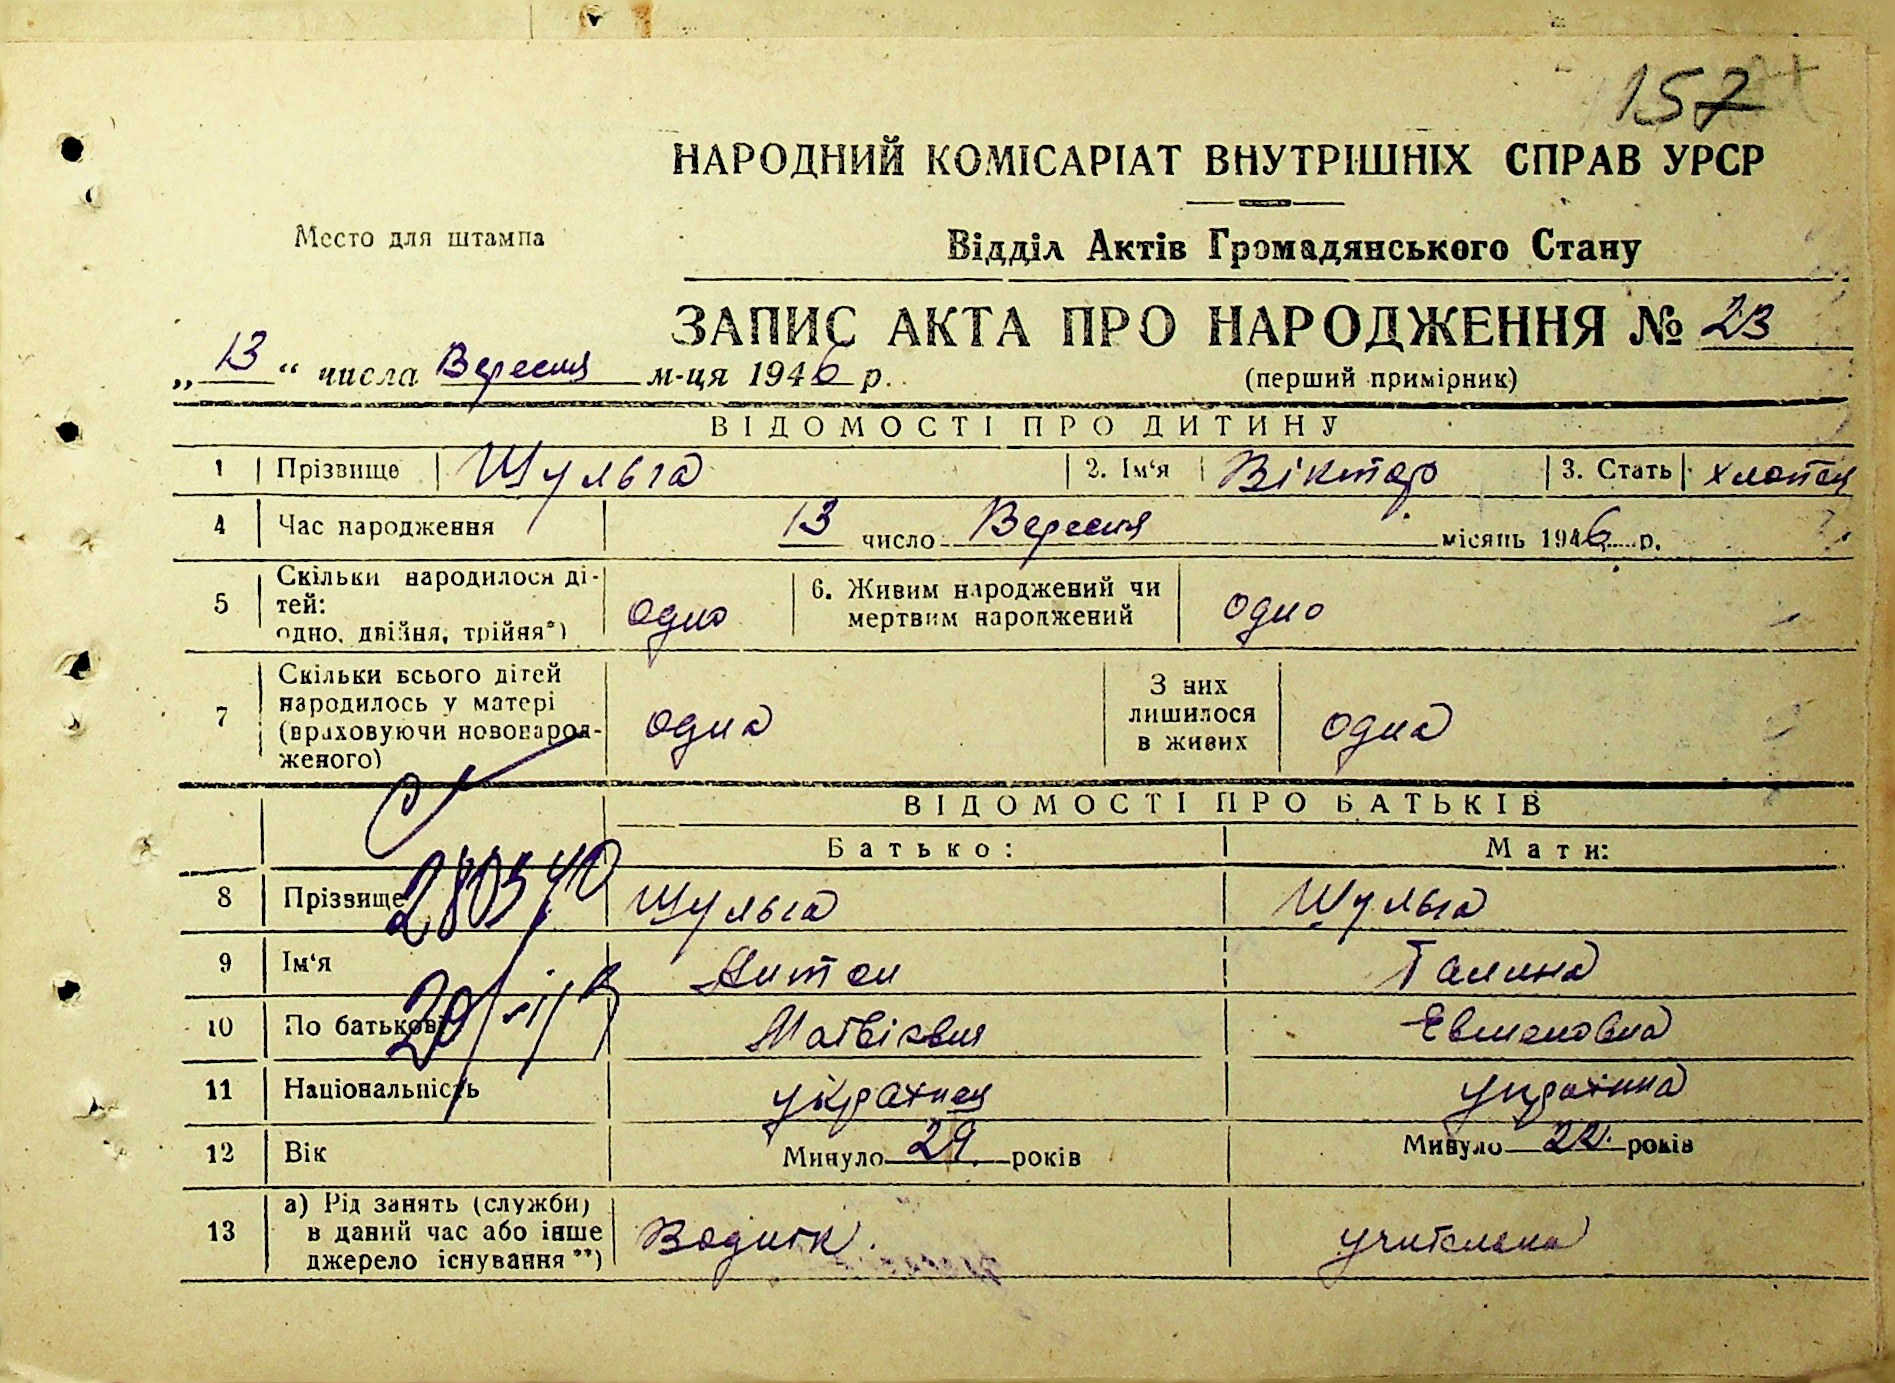 157
НАРОДНИЙ КОМІСАРІАТ ВНУТРІШНІХ СПРАВ УРСР
Место для штампа
Відділ Актів Громадянського Стану
ЗАПИС АКТА ПРО НАРОДЖЕННЯ № 23
„ 13 “ числа Вересня м-ця 1946 р.
(перший примірник)
ВІДОМОСТІ ПРО ДИТИНУ
1 Прізвище Шульга 2. Ім‘я Віктор 3. Стать хлопец
4 Час народження 13 число Вересня місяць 1946 р.
5 Скільки народилося ді-
тей:
одно, двійня, трійня*) одно
6. Живим народжений чи
мертвим народжений одно
7 Скільки всього дітей
народилось у матері
(враховуючи новонарод-
женого) одна
З них
лишилося
в живих одна
ВІДОМОСТІ ПРО БАТЬКІВ
Батько: Мати:
8 Прізвище Шульга Шульга
9 Ім‘я Антон Галина
10 По батькові Матвієвич
11 Національність українец украінка
12 Вік Минуло 29 років Минуло 22 років
13 а) Рід занять (служби)
в даний час або інше
джерело існування **) учителька